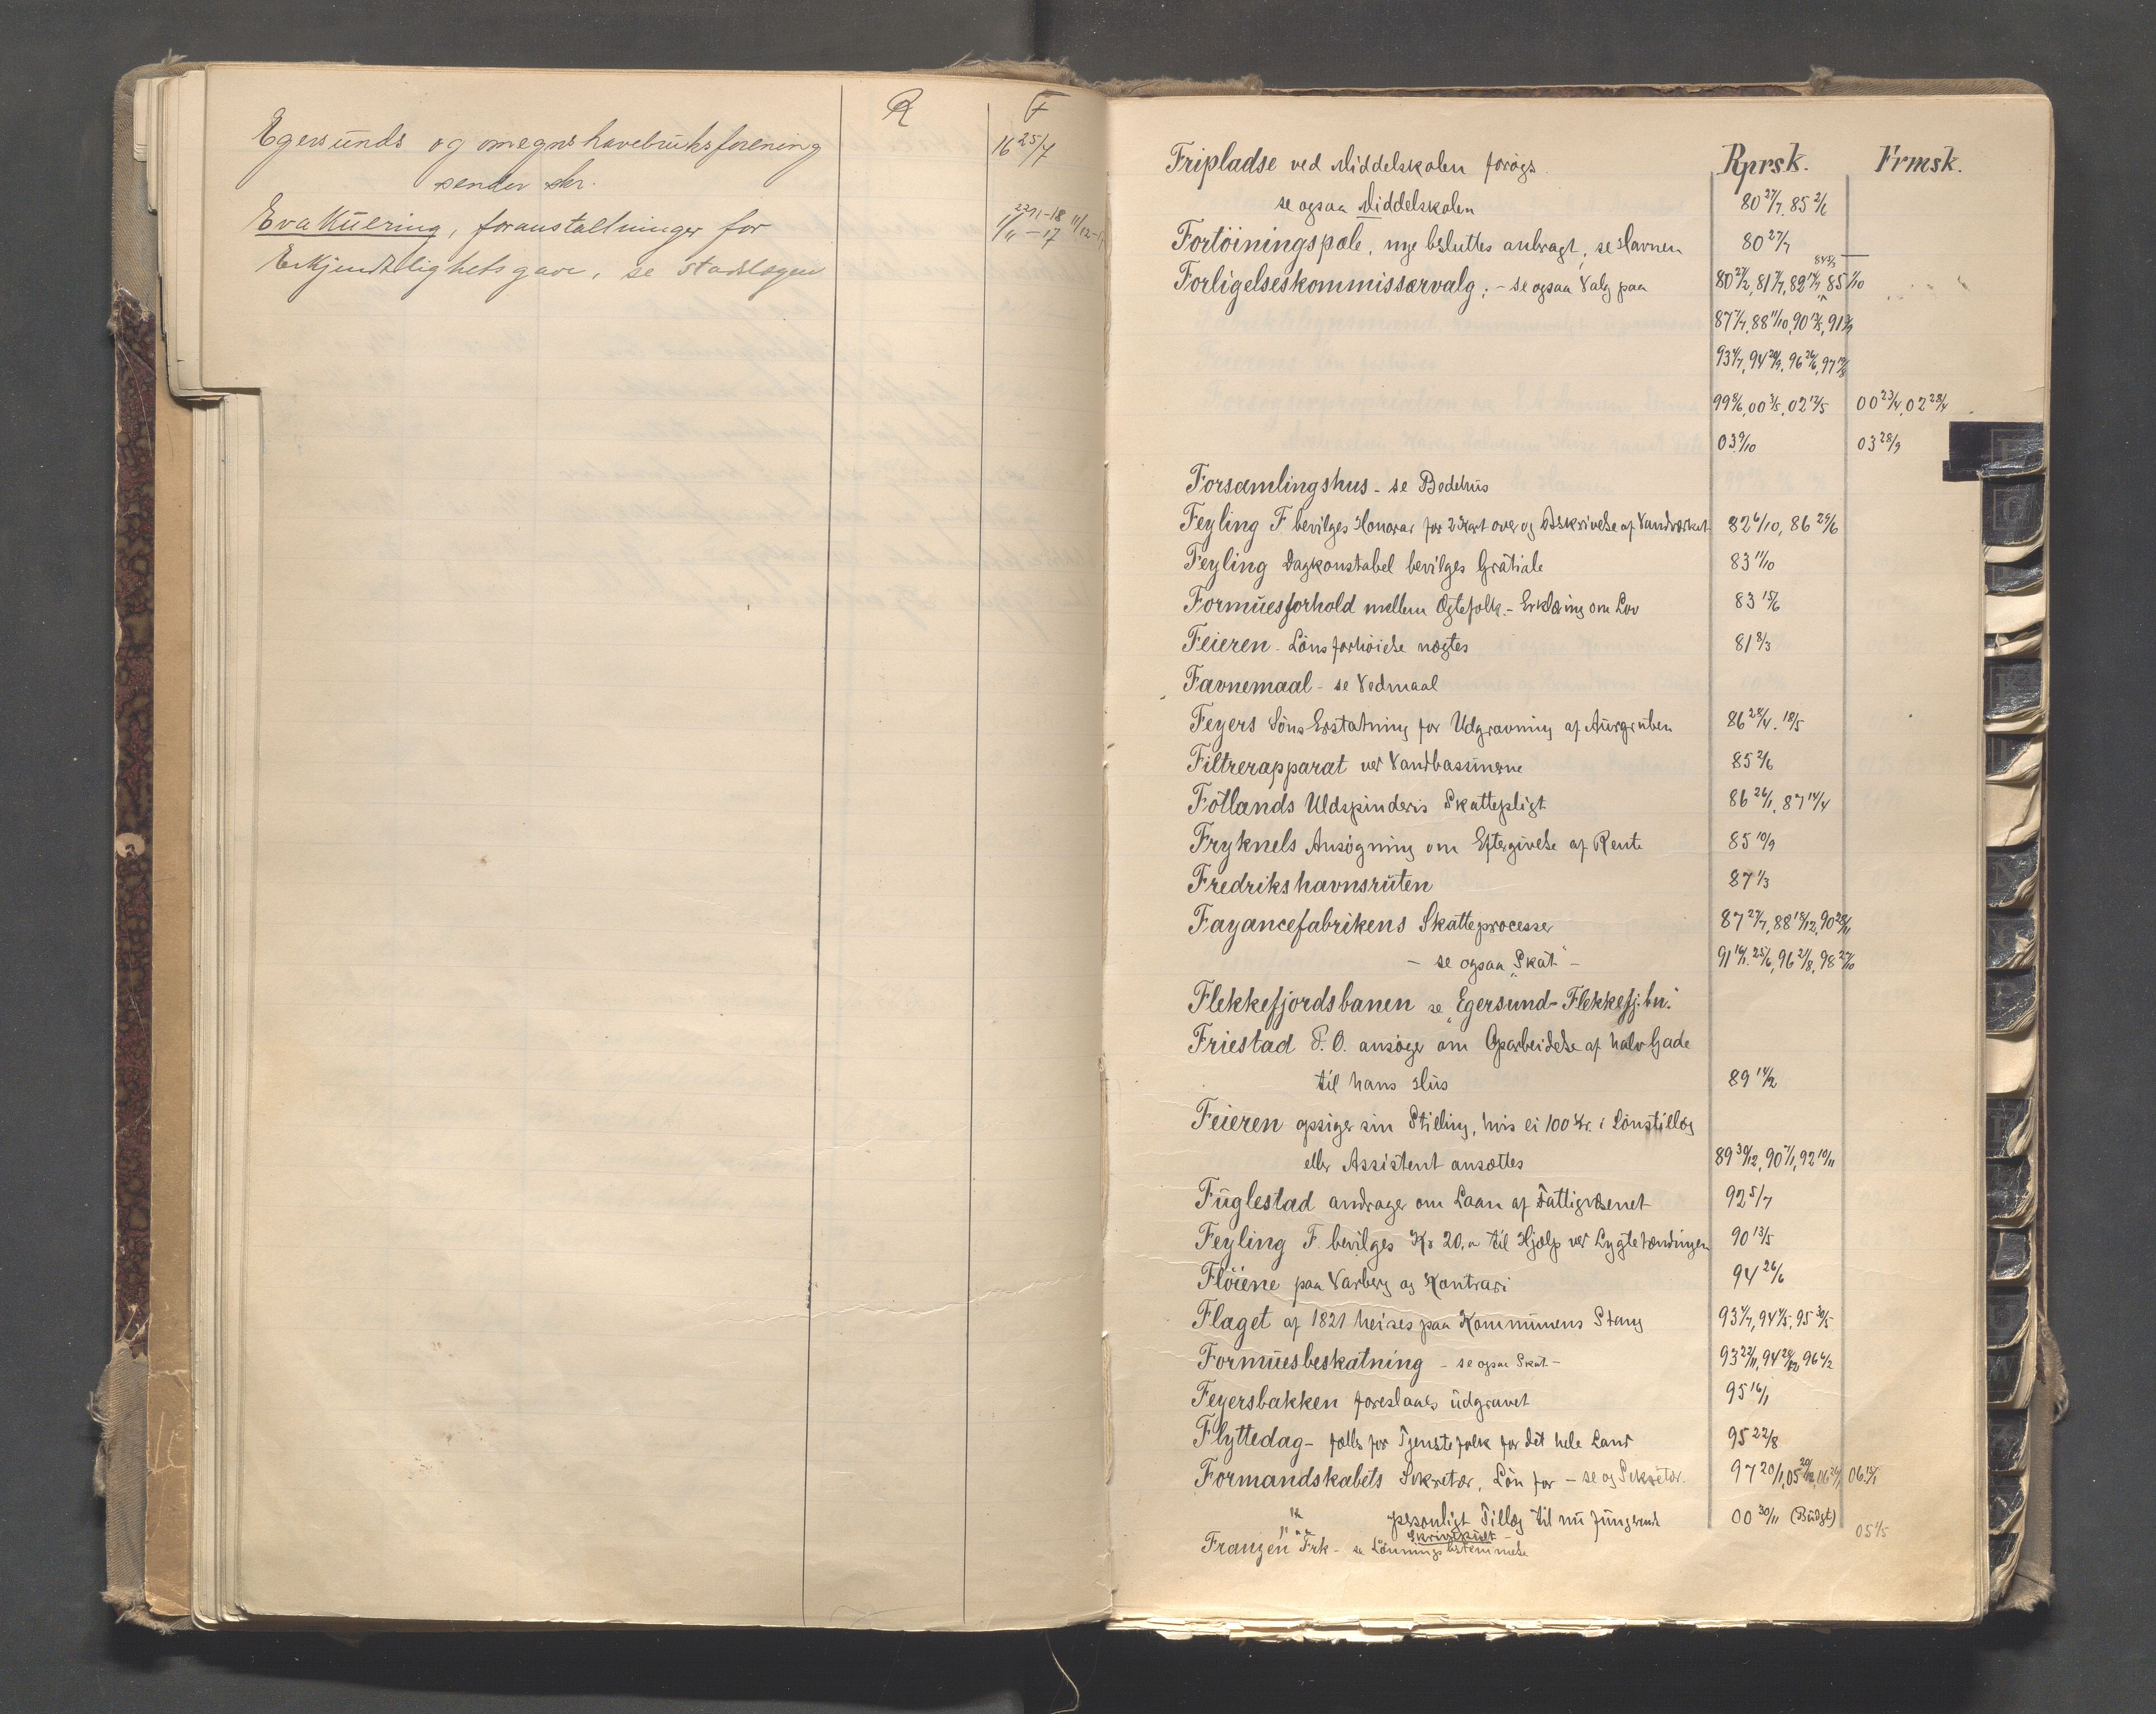 R F
Egersunds og omegns havebruksforening 16 25/7
sender skr.
Evakuering, foranstaltninger for 1/11-17
Erkjendtlighetsgave, se stadslægen
Rprsk. Frmsk.
Fripladse ved Middelskolen forøgs
se ogsaa Middelskolen 80 27/7, 85 2/6
Fortöiningspæle, nye besluttes anbragt, se Havnen 80 27/7
Forligelseskommissærvalg; - se ogsaa Valg paa
99 8/6, 00 3/5, 02 12/5 00 23/4, 02 28/4
03 9/10 03 28/9
Forsamlingshus - se Bedehus
Feyling F. bevilges Honorar for 2 Kart over og Beskrivelse af Vandværket 82 6/10, 86 24/6
Feyling Dagkonstabel bevilges Gratiale 83 11/10
Formuesforhold mellem Ægtefolk - Erklæring om Lov 83 15/6
Feieren - Lönsforhöielse nægtes 81 8/3
Favnemaal - se Vedmaal
Feyers Söns Erstatning for Udgravning af Aurgruben 86 28/4, 18/5
Filtrerapparat ved Vandbassinerne 85 2/6
Fotlands Uldspinderis Skattepligt 86 26/1, 87 14/4
Fryknels Ansøgning om Eftergivelse af Rente 85 10/9
Fredrikshavnsruten 87 1/3
Fayancefabrikens Skatteprocesser 87 27/7, 88 18/12, 90 28/11
- se ogsaa "Skat" -
Flekkefjordsbanen se "Egersund-Flekkefj.bn."
Friestad P. O. ansöger om Oparbeidelse af halv Gade
til hans Hus 89 14/2
Feieren opsiger sin Stilling, hvis ei 100 Kr. i Lönstillæg
eller Assistent ansættes 89 30/12, 90 7/1, 92 10/11
Fuglestad andrager om Laan af Fattigvæsenet 92 5/7
Feyling F. bevilges Kr 20,00 til Hjælp ved Lygtetændingen 90 13/5
Flöiene paa Varberg og Kontrari 94 26/6
Flaget af 1821 heises paa Kommunens Stang 93 4/7, 94 4/5, 95 30/5
Formuesbeskatning - se ogsaa Skat - 93 22/11
Feyersbakken foreslaaes udgravet 95 16/1
Flyttedag - fælles for Tjenestefolk for det hele Land 95 22/8
Formandskabets Sekretær, Lön for - se og Sekretær. 97 20/1
personligt Tillæg til nu fungerende 00 30/11 (Budgt)
Skrivekuet
Franzen Frk - se Lönningsbestemmelse 05 1/5